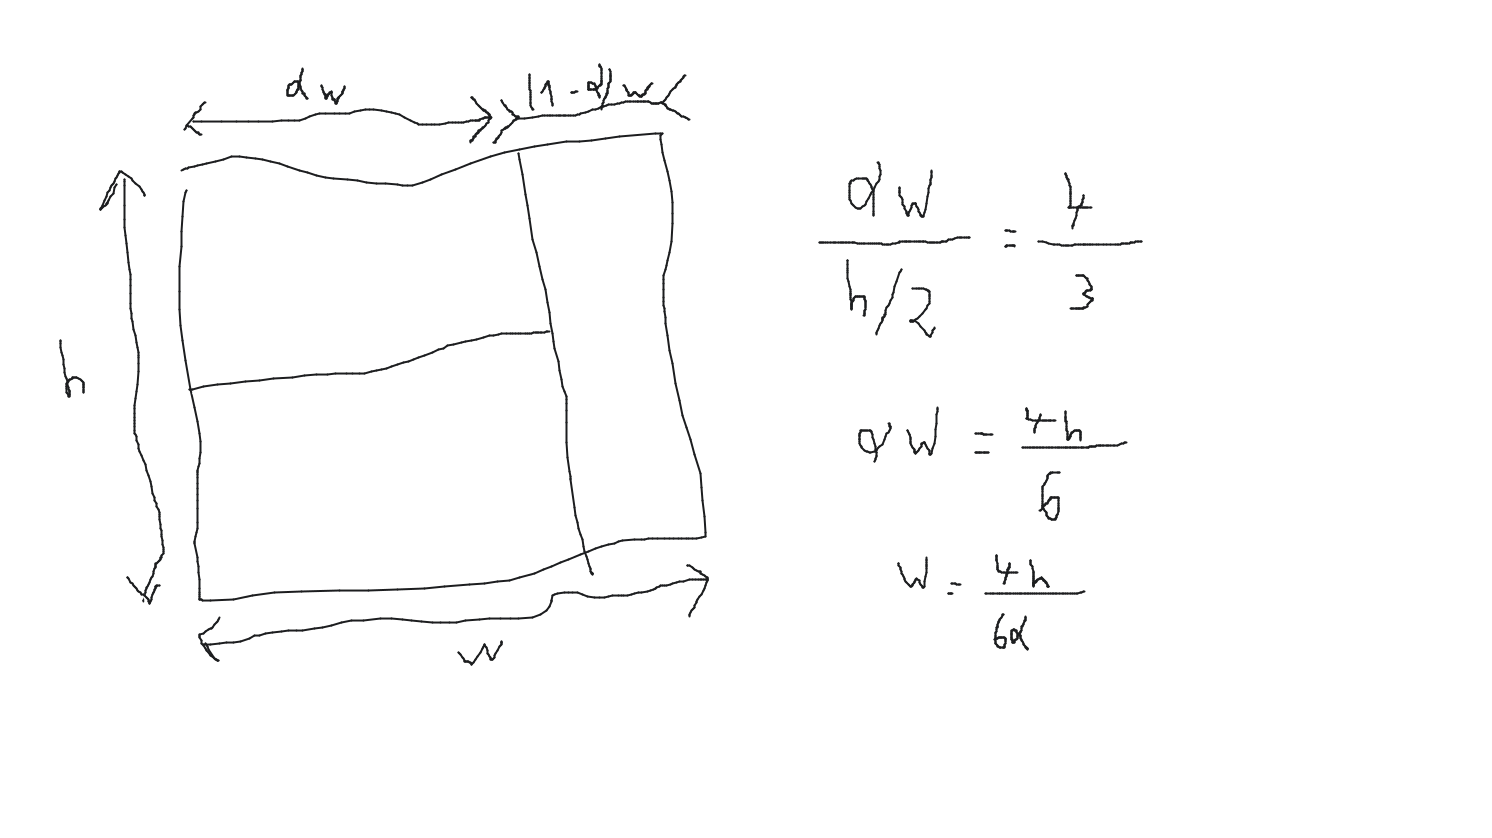 αw
(1-α)w
h
w
αw/(h/2) = 4/3
αw = 4h/6
w = 4h/6α